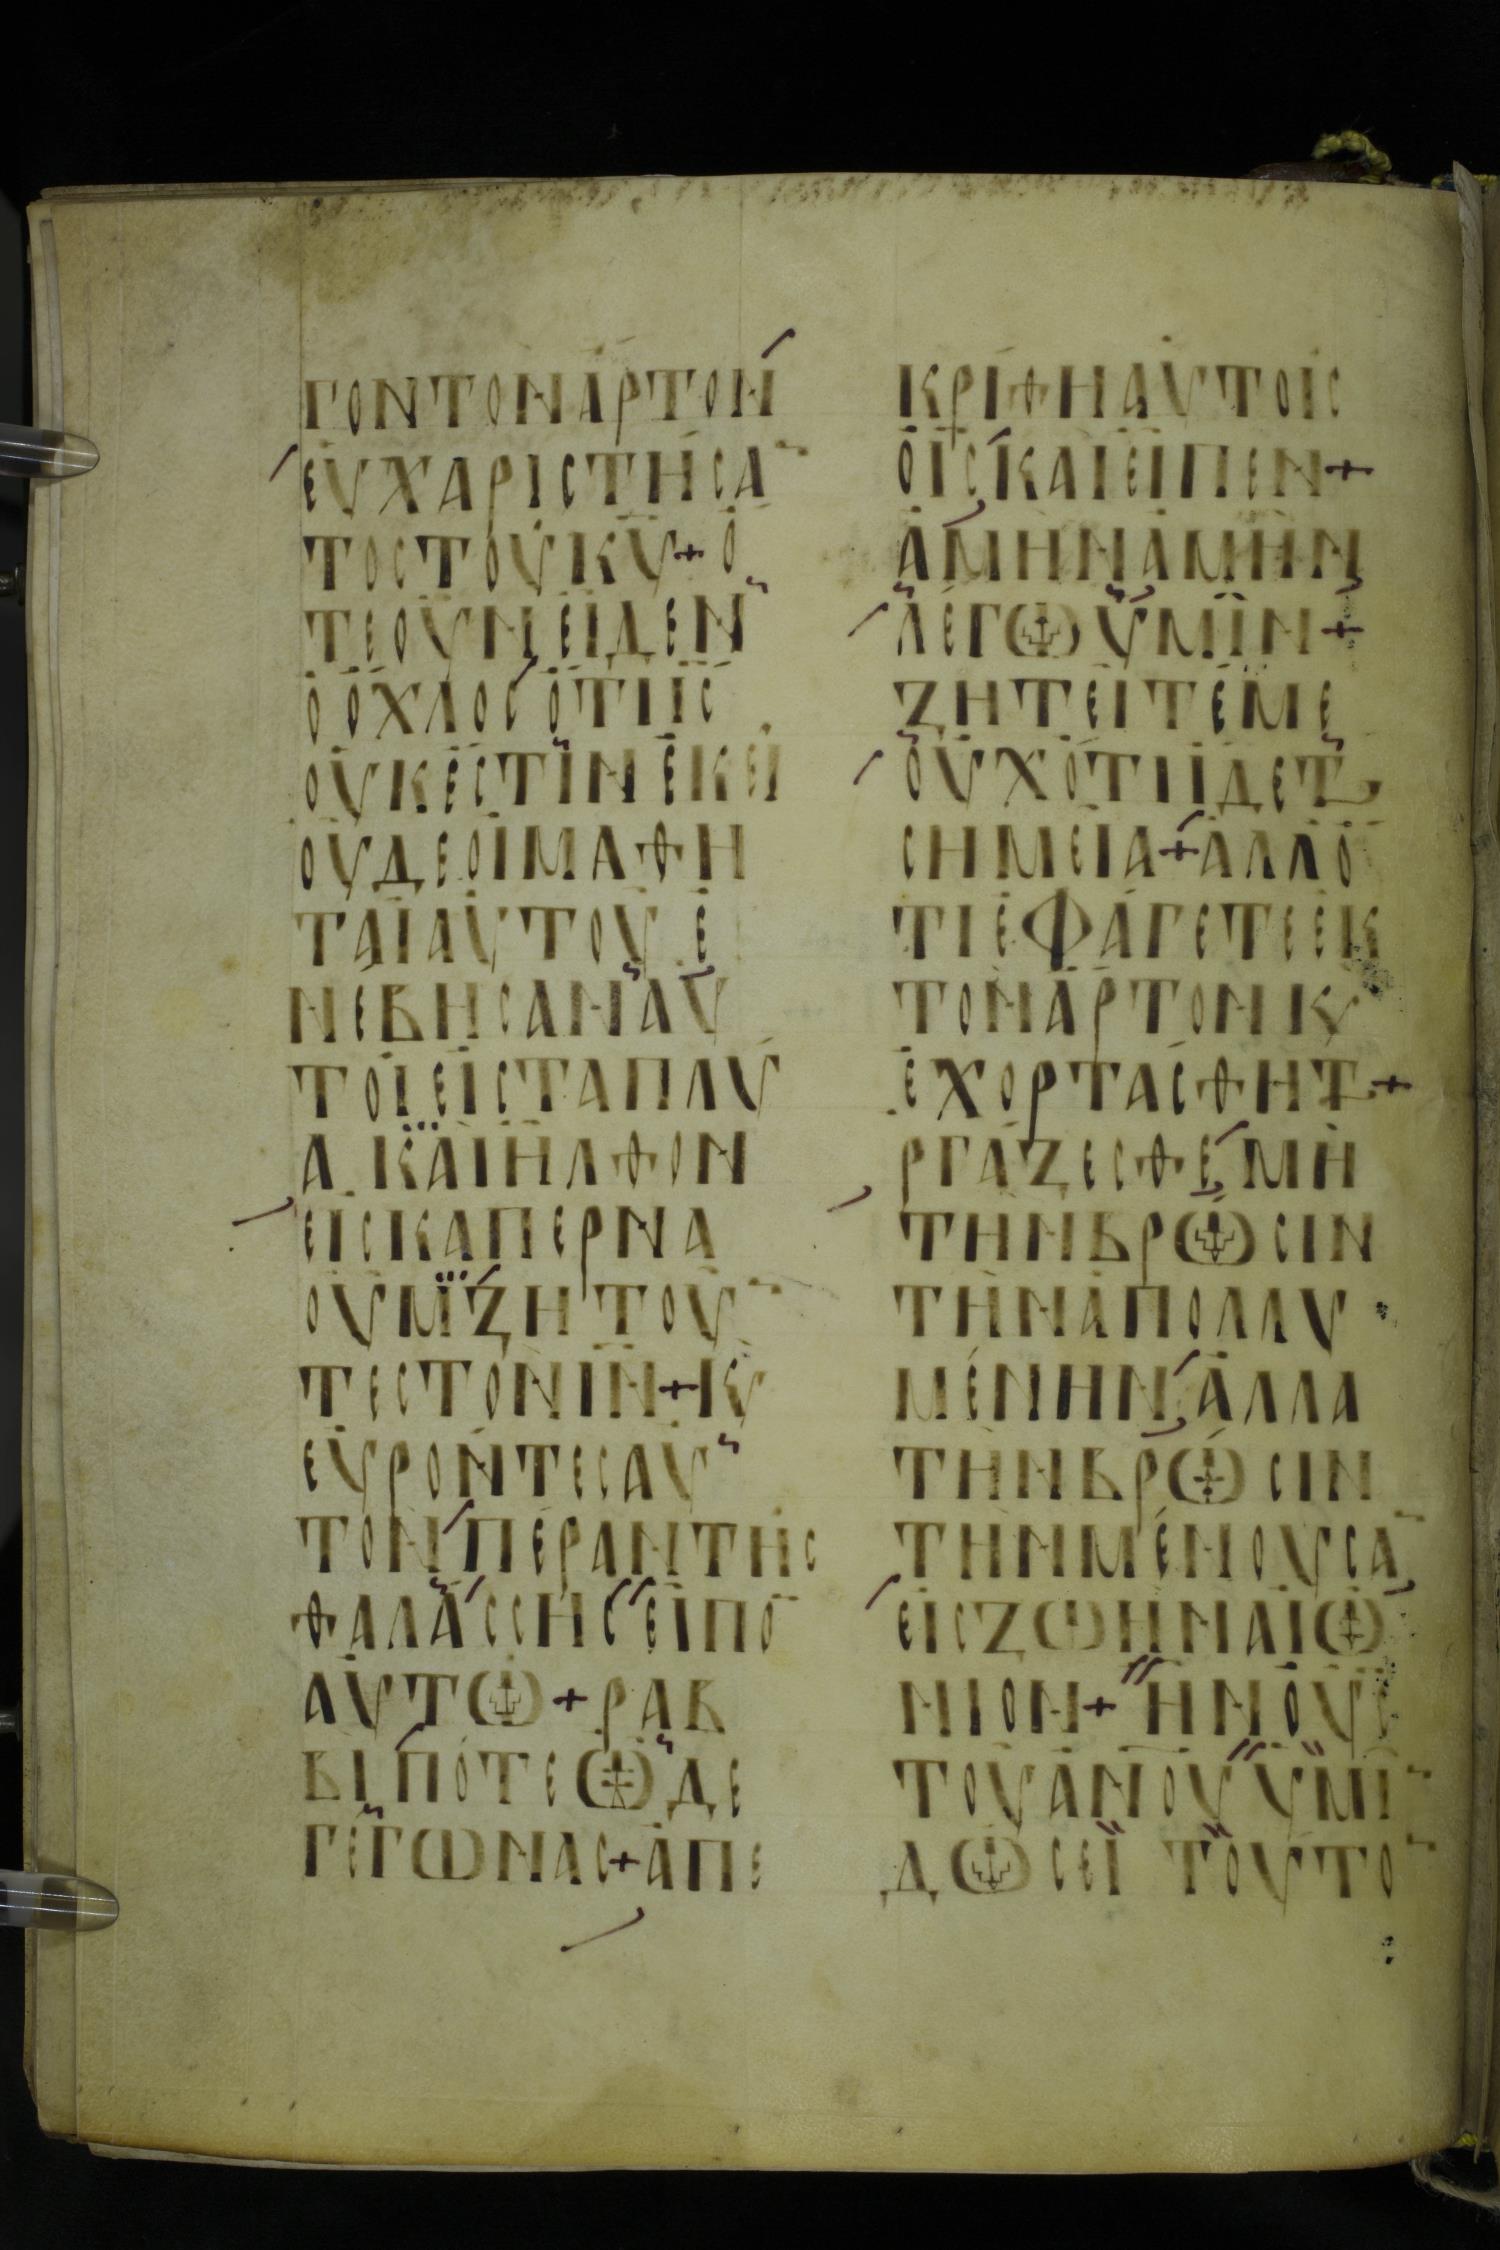 ΓΟΝΤΟΝΑΡΤΟΝ
ΕΥΧΑΡΙCΤΗCΑ
ΤΟCΤΟΥΚΥ+Ο
ΤΕΟΥΝΕΙΔΕΝ
ΟΟΧΛΟCΟΤΙΙC
ΟΥΚΕCΤΙΝΕΚΕΙ
ΟΥΔΕΟΙΜΑΘΗ
ΤΑΙΑΥΤΟΥ Ε
ΝΕΒΗCΑΝΑΥ
ΤΟΙΕΙCΤΑΠΛΥ
Α. ΚΑΙΗΛΘΟΝ
ΕΙCΚΑΠΕΡΝΑ
ΟΥΜΖΗΤΟΥ
ΤΕCΤΟΝΙΝ+Κ
ΕΥΡΟΝΤΕCΑΥ
ΤΟΝΠΕΡΑΝΤΗC
ΘΑΛΑCCΗCΕΙΠΟ
ΑΥΤΩ+ΡΑΒ
ΒΙΠΟΤΕΩΔΕ
ΓΕΓΩΝΑC+ΑΠΕ
ΚΡΙΘΗΑΥΤΟΙC
ΟΙCΚΑΙΕΙΠΕΝ+
ΑΜΗΝΑΜΗΝ
ΛΕΓΩΥΜΙΝ+
ΖΗΤΕΙΤΕΜΕ
ΟΥΧΟΤΙΙΔΕΤ
CΗΜΕΙΑ+ΑΛΛΟ
ΤΙΕΦΑΓΕΤΕΕΚ
ΤΟΝΑΡΤΟΝΚ
ΕΧΟΡΤΑCΘΗΤ+
ΡΓΑΖΕCΘΕΜΗ
ΤΗΝΒΡΩCΙΝ
ΤΗΝΑΠΟΛΛΥ
ΜΕΝΗΝΑΛΛΑ
ΤΗΝΒΡΩCΙΝ
ΤΗΝΜΕΝΟΥCΑ
ΕΙCΖΩΗΝΑΙΩ
ΝΙΟΝ+ΗΝΟΥC
ΤΟΥΑΝΟΥΥΜΙ
ΔΩCΕΙ ΤΟΥΤΟ